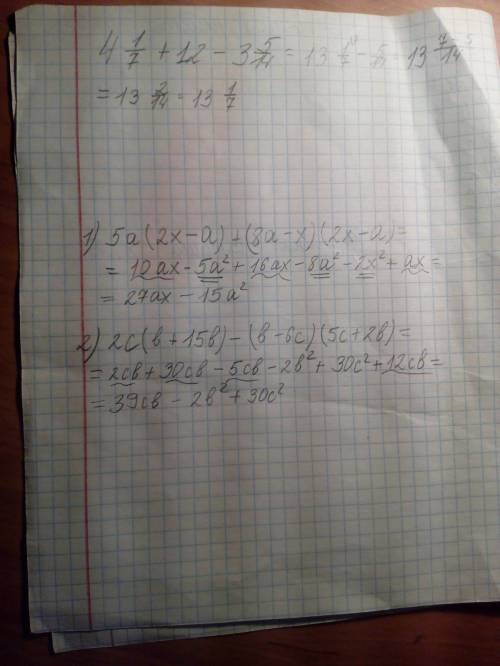 4 1/7 + 12 - 3 5/14 = 13 1/7 - 5/14 = 13 7-5/14
= 13 2/14 = 13 1/7
1) 5a(2x-a)+(8a-x)(2x-a)=
= 10ax-5a²+16ax-8a²-2x²+ax=
= 27ax-15a²
2) 2c(в+15в)-(в-6c)(5c+2в)=
= 2cв+30cв-5cв-2в²+30c²+12cв=
= 39cв-2в²+30c²